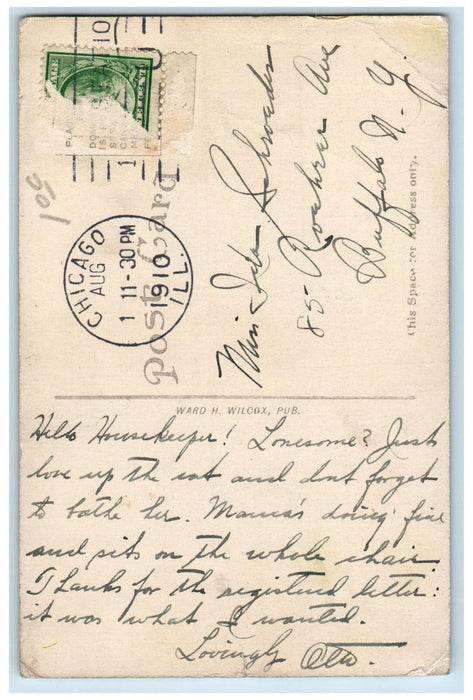 POSTAGE
10
100
CHICAGO
AUG
1 11-30 PM
1910
ILL.
Post Card
Miss Ida Schroeder
85- Roehrer Ave
Buffalo N. Y.
This Space for address only.
WARD H. WILCOX, PUB.
Hello Housekeeper! Lonesome? Just
love up the cat and dont forget
to bathe her. Mama's doing fine
and sits on the whole chair.
Thanks for the registered letter:
it was what I wanted.
Lovingly Otto.